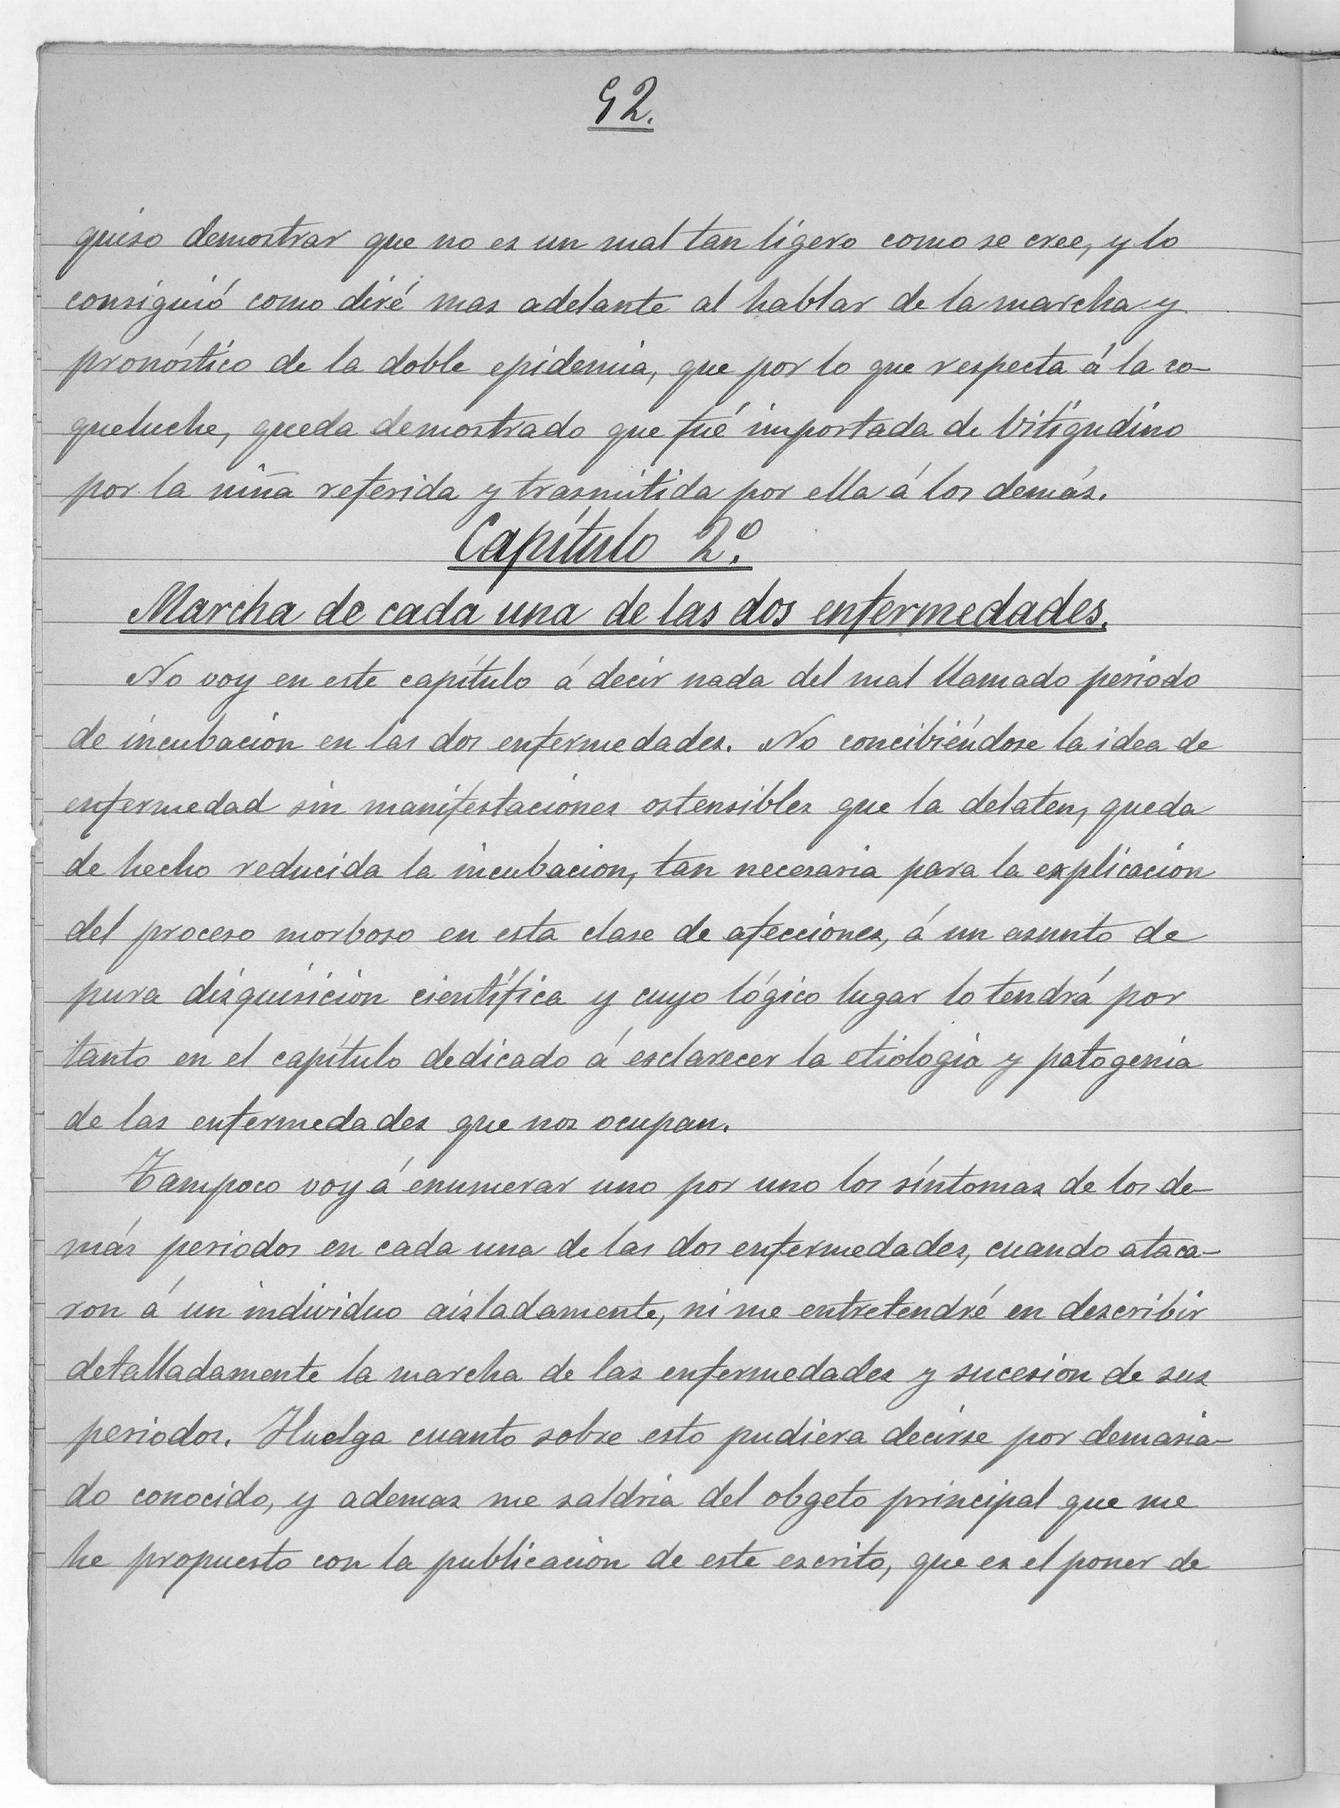 92.
quiso demostrar que no es un mal tan ligero como se cree, y lo
consiguió como diré mas adelante al hablar de la marcha y
pronóstico de la doble epidemia, que por lo que respecta á la co-
queluche, queda demostrado que fué importada de Vitigudino
por la niña referida y trasmitida por ella á los demás.
Capítulo 2º.
Marcha de cada una de las dos enfermedades.
No voy en este capítulo á decir nada del mal llamado periodo
de incubación en las dos enfermedades. No concibiéndose la idea de
enfermedad sin manifestaciones ostensibles que la delaten, queda
de hecho reducida la incubacion, tan necesaria para la explicación
del proceso morboso en esta clase de afecciones, á un asunto de
pura disquisición científica y cuyo lógico lugar lo tendrá por
tanto en el capítulo dedicado á esclarecer la etiologia y patogenia
de las enfermedades que nos ocupan.
Tampoco voy á enumerar uno por uno los síntomas de los de-
más periodos en cada una de las dos enfermedades, cuando ataca-
ron á un individuo aisladamente, ni me entretendré en describir
detalladamente la marcha de las enfermedades y sucesión de sus
periodos. Huelga cuanto sobre esto pudiera decirse por demasia-
do conocido, y ademas me saldria del obgeto principal que me
he propuesto con la publicación de este escrito, que es el poner de